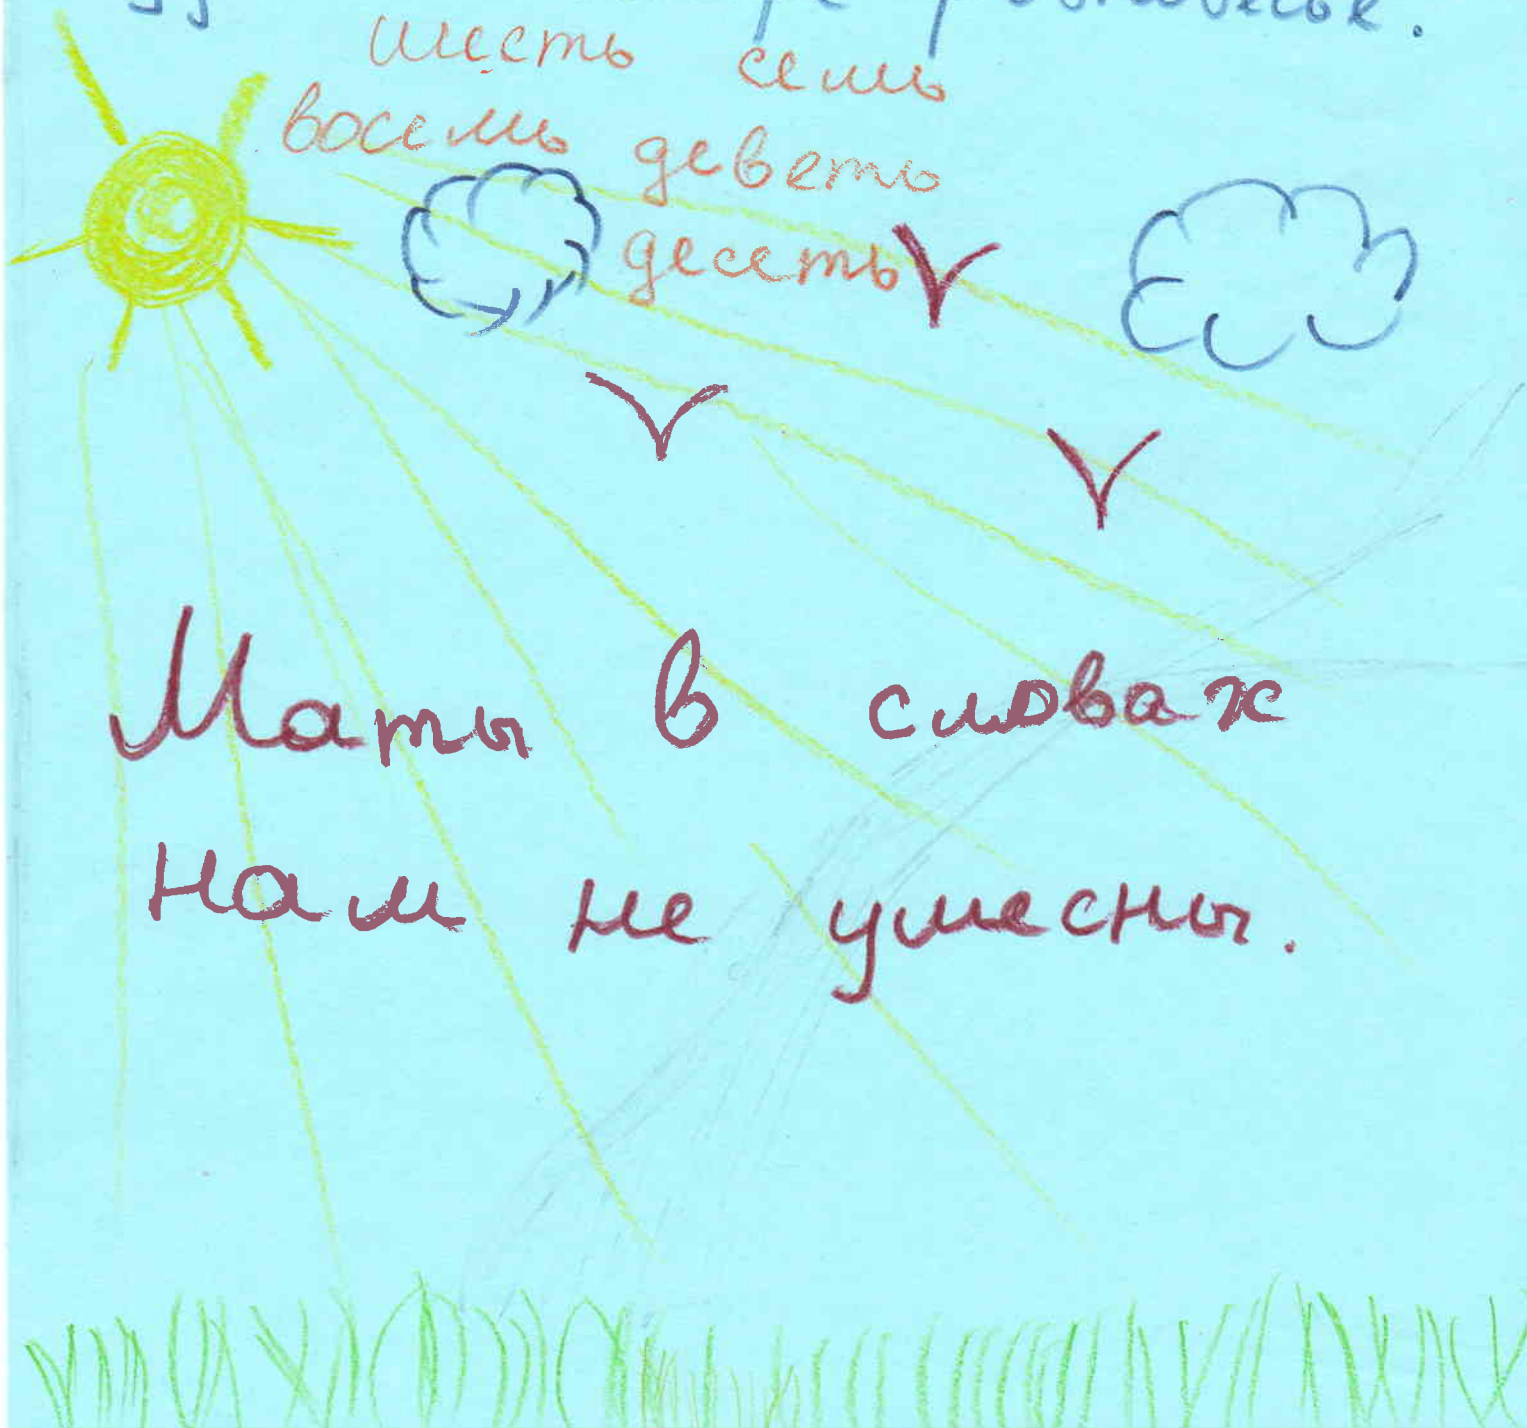 шесть семь
восемь деветь
десеть
Маты в словах
нам не умесны.